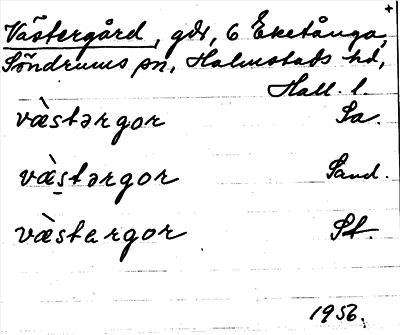 +
Västergård, gdr, 6 Eketånga,
Söndrums sn, Halmstads hd,
Hall. l.
væ̀stərgor Sa.
væ̀s̠tərgor Sand.
væ̀stargor St.
1956.